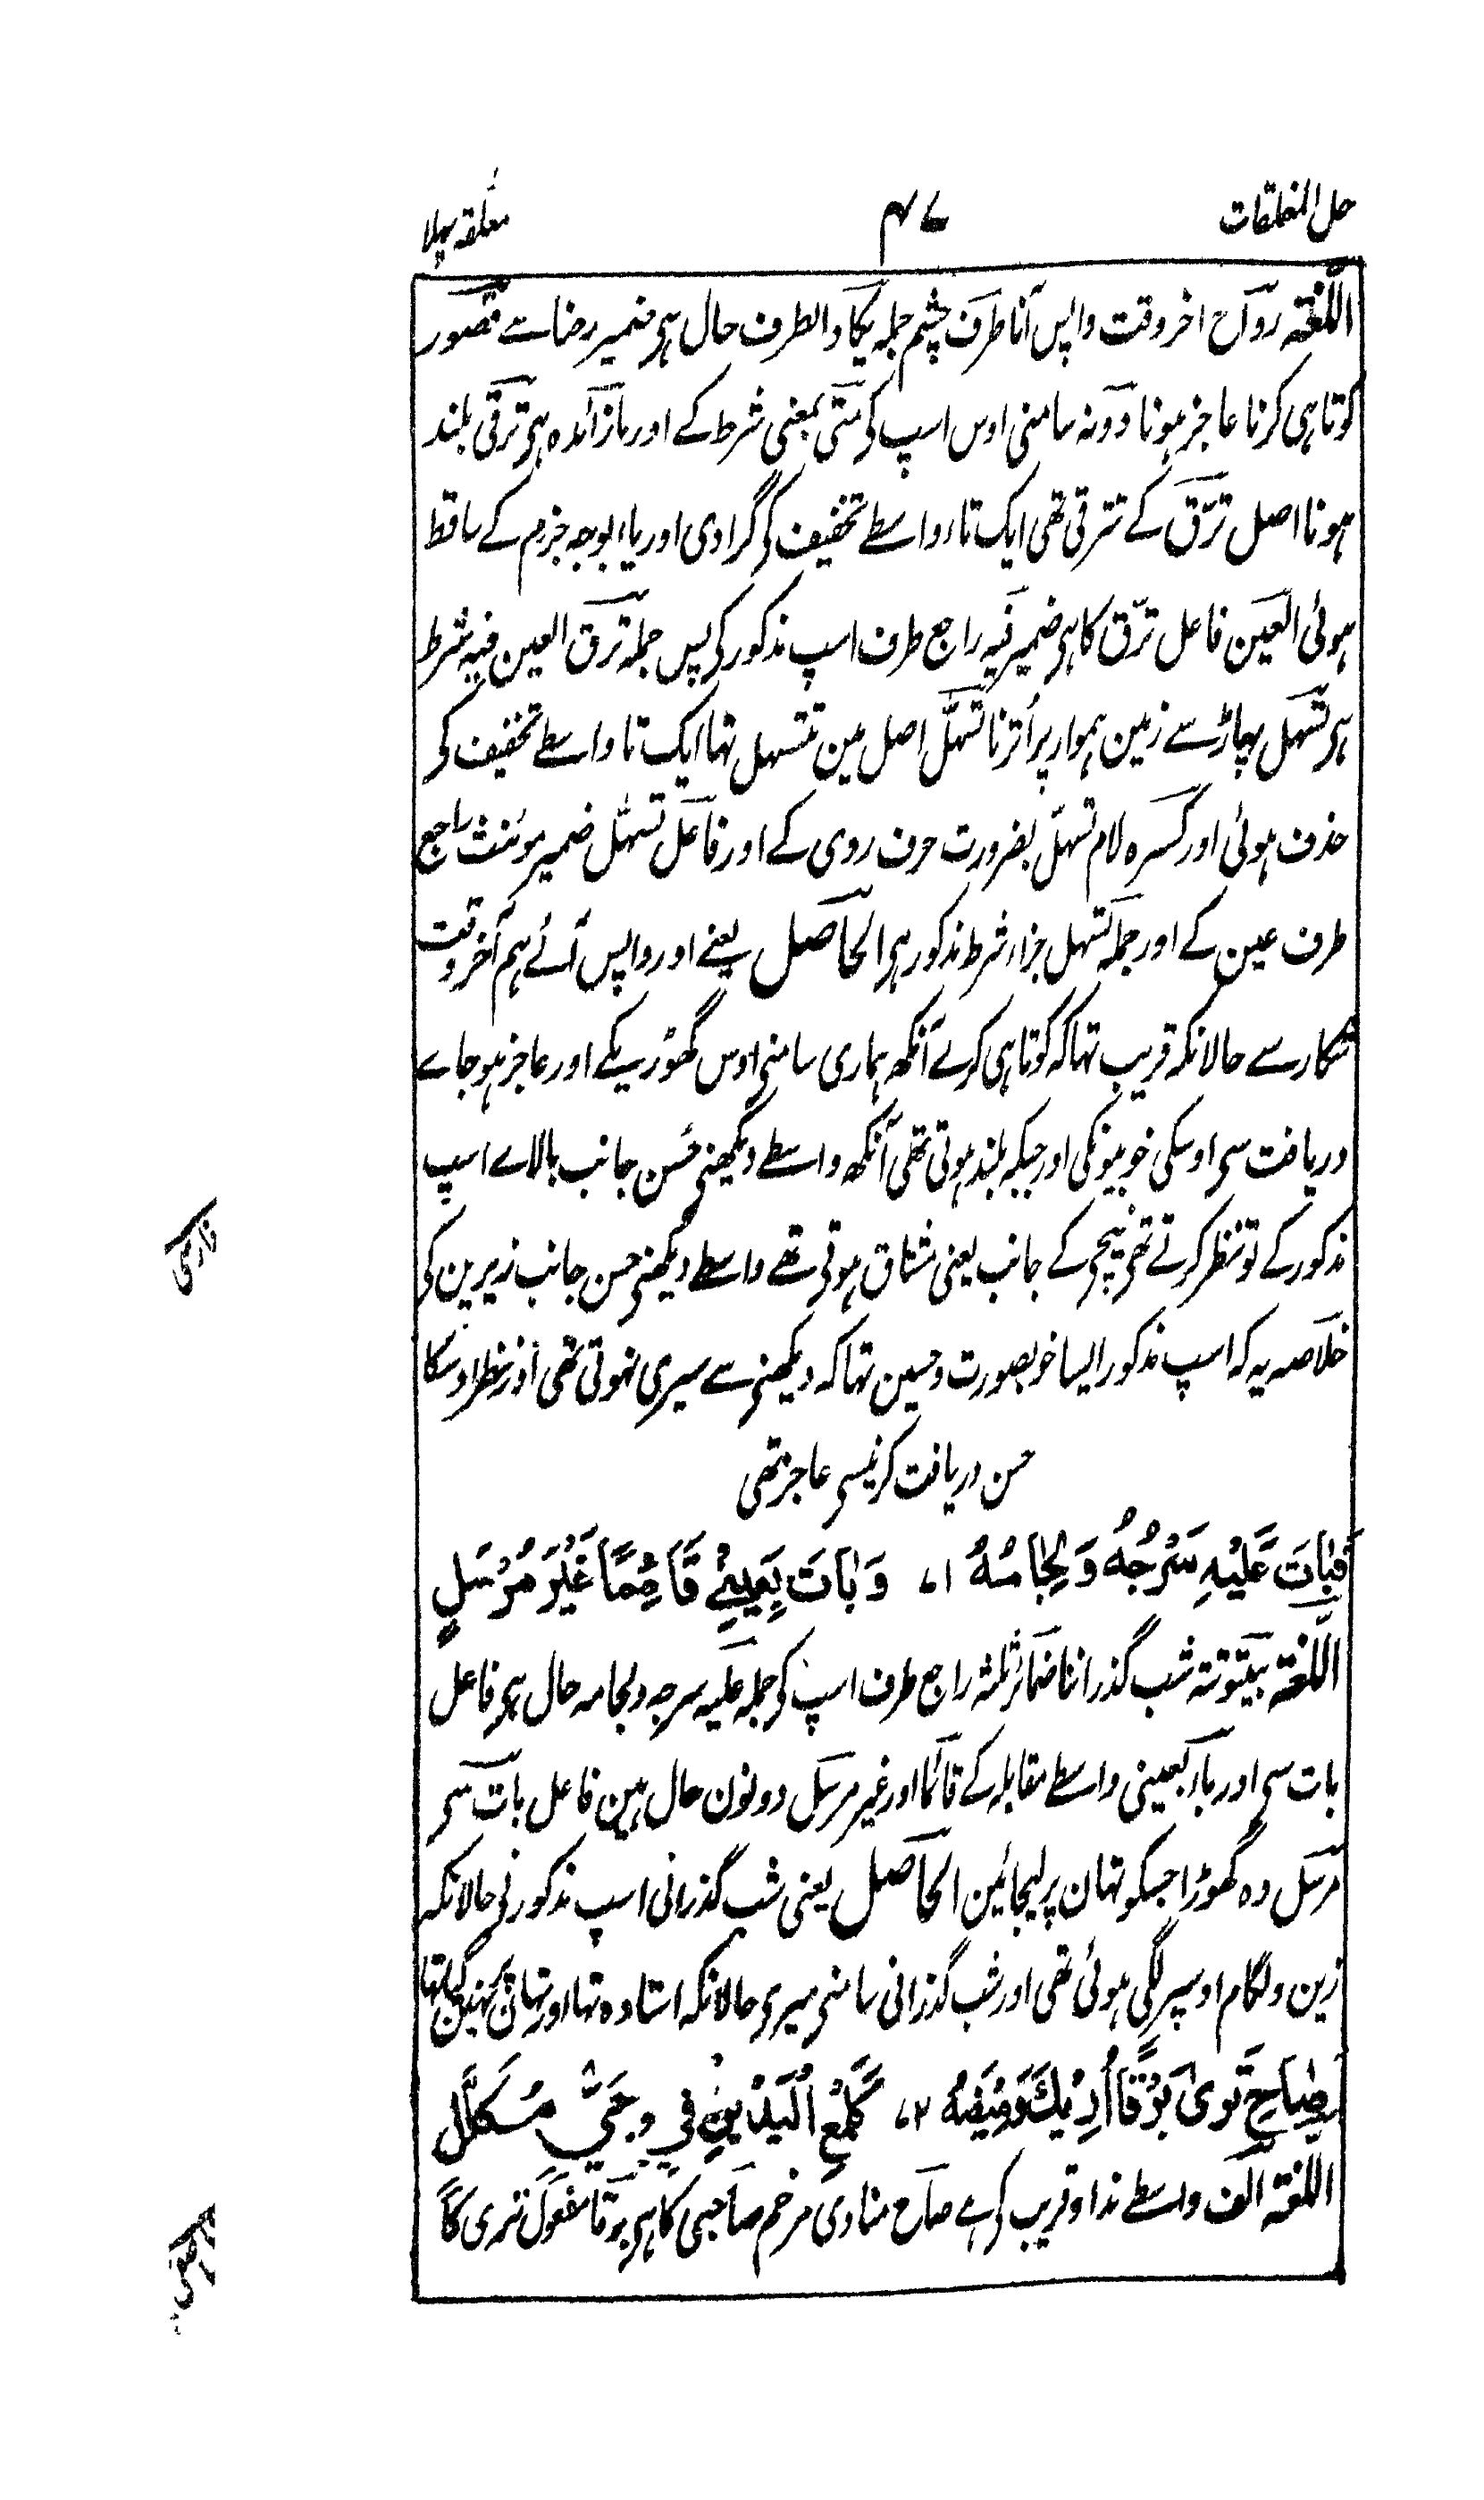 حل المغلقات
۴۷
معلقہ پہلا
اللغۃ رواح اخر وقت واپس آنا طرف چشم جملہ یکاد الطرف حال ہی ضمیر رحنا سے قصور
کوتاہی کرنا عاجز ہونا دونہ سامنی اوس اسپ کی متی بمعنی شرط کے اور ما زائدہ ہی ترقی بلند
ہونا اصل ترّق کے تترقی تھی ایک تاء واسطے تخفیف کی گرادی اور یاء بوجہ جزم کے ساقط
ہوئی العین فاعل ترّق کا ہی ضمیر فیہ راجع طرف اسپ مذکور کی پس جملہ ترق العین فیہ شرط
ہی تسہل پہاڑ سے زمین ہموار پر اُترنا تسہّل اصل مین تتسہل تہا ایک تا واسطے تخفیف کی
حذف ہوئی اور کسرہ لام تسہل بضرورت حرف روی کے اور فاعل تسہّل ضمیر مونث راجع
طرف عین کے اور جملہ تسہل جزاء شرط مذکور ہی الحاصل یعنے اور واپس آئے ہم آخر وقت
شکار سے حالانکہ قریب تہا کہ کوتاہی کرے آنکھ ہماری سامنی اوس گھوڑیکے اور عاجز ہو جاے
دریافت سی اوسکی خوبیونکی اور جبکہ بلند ہوتی تھی آنکھ واسطے دیکھنی حُسن جانب بالاے اسپ
مذکور کے تو نظر کرتے تھی نیچی کے جانب یعنی مشتاق ہوتی تھے واسطے دیکھنی حسن جانب زیرین کی
خلاصہ یہ کہ اسپ مذکور ایسا خوبصورت و حسین تہا کہ دیکھنی سے سیری نہوتی تھی اور نظر اوسکا
حسن دریافت کرنیسی عاجز تھی
فَبَاتَ عَلَيْهِ سَرْجُهُ وَلِجَامُهُ ۷۱ وَبَاتَ بِعَيْنِيْ قَائِمًا غَيْرَ مُرْسَلِ
اللّغۃ بیتوتۃ شب گذراننا ضمائر ثلثہ راجع طرف اسپ کی جملہ علیہ سرجہ ولجامہ حال ہی فاعل
بات سی اور باء بعینی واسطے مقابلہ کے قائما اور غیر مرسل دونون حال ہین فاعل بات سی
مرسل وہ گھوڑا جسکو تہان پر لیجائین الحاصل یعنی شب گذرانی اسپ مذکور نی حالانکہ
زین ولگام اوسپر لگی ہوئی تھی اور شب گذرانی سامنی میری حالانکہ استادہ تہا اور تہان پر نہین گیا تہا
أَصَاحِ تَرىٰ بَرْقًا أُرِيْكَ وَمِيْضَهُ ۷۲ كَلَمْعِ الْيَدَيْنِ فِي حَبِيٍّ مُكَلَّلِ
اللغۃ الف واسطے نداء قریب کی ہے صاح منادی مرخم صاحبی کا ہی برقا مفعول تری کا